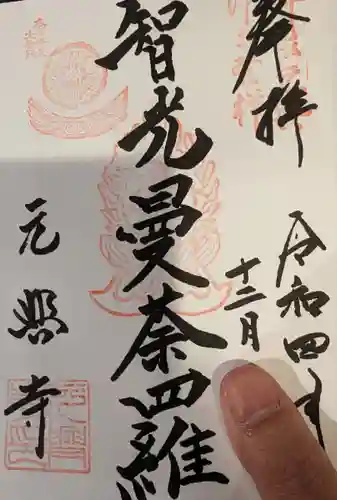 奉拝
令和四年
十二月
智光曼奈羅
元興寺